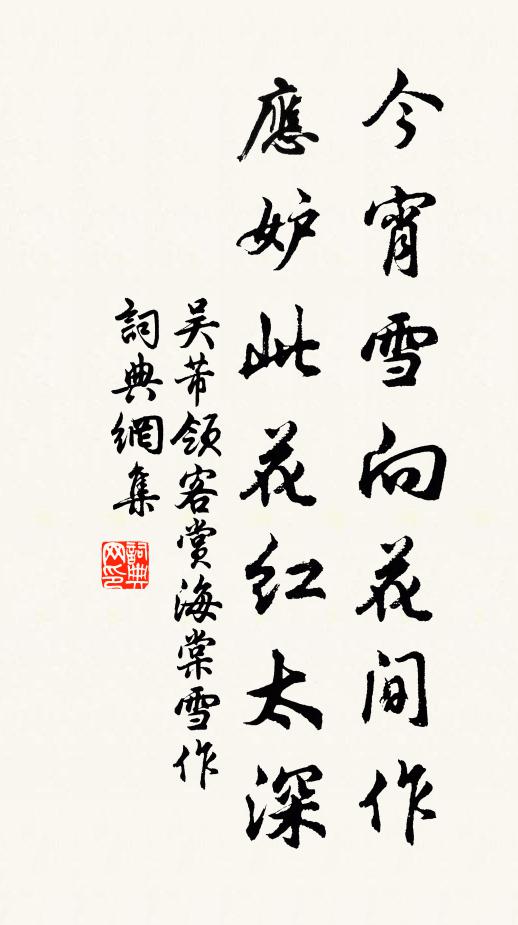 今宵雪向花間作
應妒此花紅太深
吴芾領客賞海棠雪作
詞典網集
詞典网印